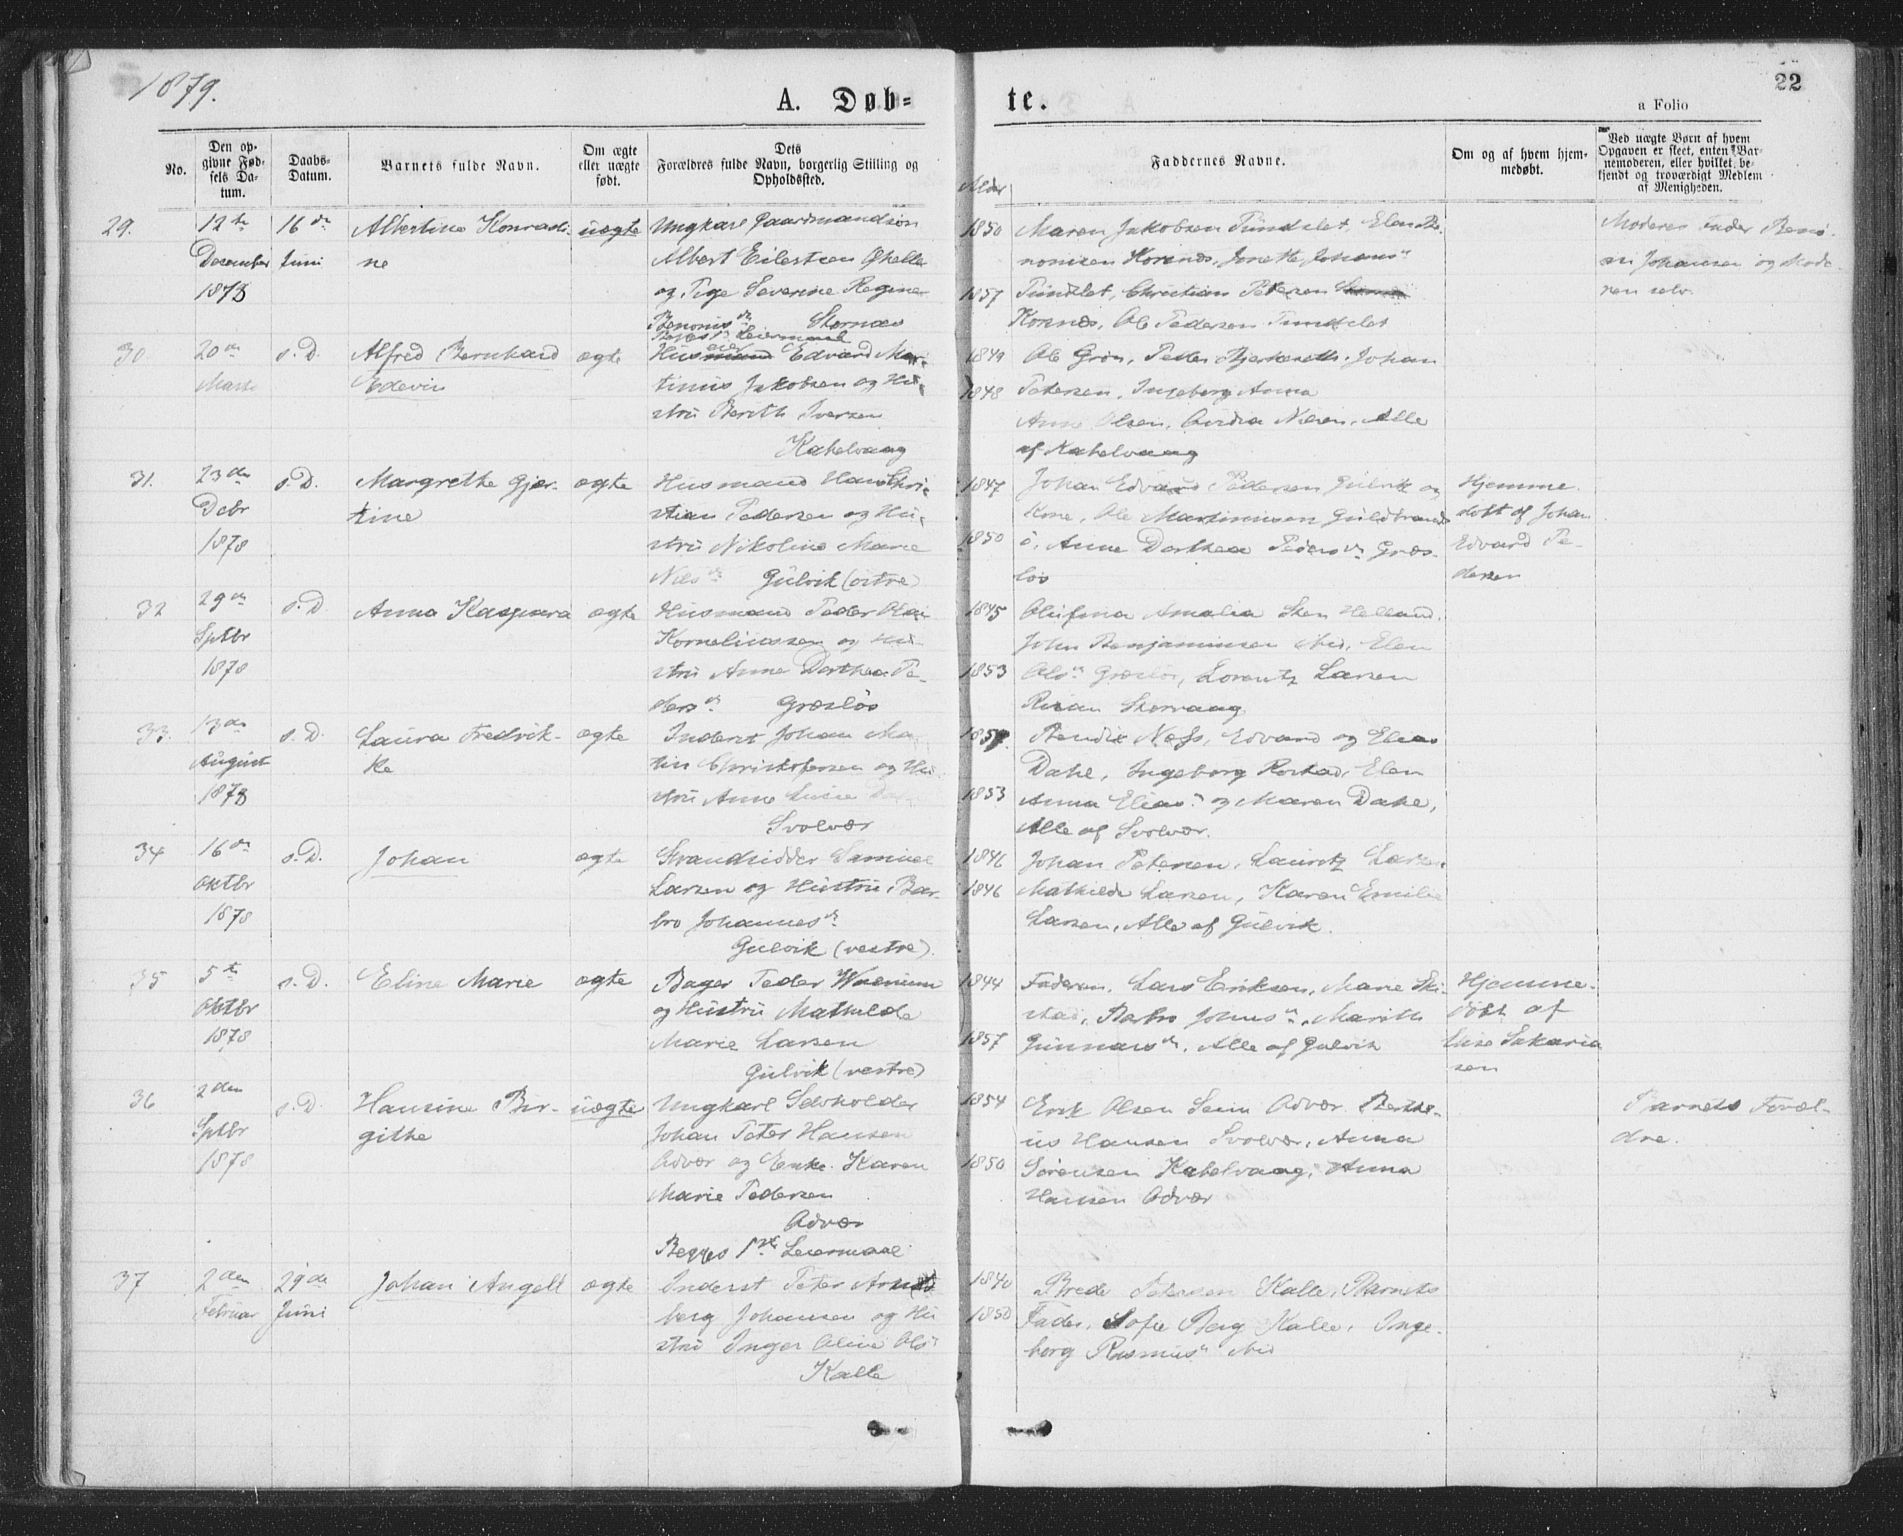 1879.
A. Døb=
te.
22
a Folio
No.
Den op-
givne Fød-
sels Da-
tum.
Daabs-
Datum.
Barnets fulde Navn.
Om ægte
eller uægte
født.
Dets
Forældres fulde Navn, borgerlig Stilling og
Opholdssted.
Alder
Faddernes Navne.
Om og af hvem hjem-
medøbt.
Ved uægte Børn af hvem
Opgaven er skeet, enten Bar-
nemoderen, eller hvilket be-
kjendt og troværdigt Medlem
af Menigheden.
29.
12te
December
1878
16de
Juni
Albertine Konradi-
ne
uægte
Ungkarl Gaardmandssøn
Albert Eilertsen Øhelle
og Pige Severine Regine
Benonisdr Størnæs
Begges 1ste Leiermaal
1850
1857
Maren Jakobsen Tundslet, Elen Be-
nonisen Horsnes, Jonette Johansdr
Tundslet, Christian Petersen
Korsnes, Ole Pedersen Tundslet
Moderens Fader Beno-
ni Johansen og Mode-
ren selv.
30.
20de
Marts
s. D.
Alfred Bernhard
Edevin
ægte
Huseier Edvard Mar-
tinius Jakobsen og Hu-
stru Bereth Iversen
Kabelvaag
1849
1848
Ole Grøn, Peder Bjerkeseth, Johan
Petersen, Ingeborg Anna
Anne Olsen, Andrea Nilsen, Alle
af Kabelvaag
31.
23de
Debr
1878
s. D.
Margrethe Gjer-
tine
ægte
Husmand Hans Chri-
stian Pedersen og Hu-
stru Nikoline Marie
Nilsdr Gulvik (østre)
1847
1850
Johan Edvard Pedersen Gulvik og
Kone, Ole Martinussen Guldbrands
ö, Anne Dorthea Pedersdr Græs-
løs
Hjemme
døbt af Johan
Edvard Pe-
dersen
32
29de
Sptbr
1878
s. D.
Anna Kaspara
ægte
Husmand Peder Olai
Korneliussen og Hu-
stru Anne Dorthea Pe-
dersdr Græsløs
1845
1853
Olufina Amalia Sten Helland,
John Benjaminsen ibid, Elen
Olsdr Græsløs, Lorentz Larsen
Risan Storvaag
33.
13de
August
1878
s. D.
Laura Fredrik-
ke
ægte
Inderst Johan Ma
tin Christofersen og Hu-
stru Anne Lucie
Svolvær
1853
Bendix Næss, Edvard og Elias
Dahl, Ingeborg Rostad, Elen
Anna Eliasdr og Maren Dahl,
Alle af Svolvær.
34
16de
Oktbr
1878
s. D.
Johan
ægte
Strandsidder Samuel
Larsen og Hustru Bar-
bro Johannesdr
Gulvik (vestre).
1846
1846
Johan Petersen, Lauritz Larsen
Mathilde Larsen, Karen Emilie
Larsen, Alle af Gulvik.
35
5te
Oktbr
1878
s. D.
Eline Marie
ægte
Bager Peder Wærnum
og Hustru Mathilde
Marie Larsen
Gulvik (vestre)
1844
1857
Faderen, Lars Eriksen, Marie Ski-
stad, Barbro Johnsdr, Marith
Gunnarsdr, Alle af Gulvik
Hjemme-
døbt af
Elise Sakaria
sen
36
2den
Sptbr
1878
s. D.
Hansine Bir-
githe
uægte
Ungkarl Selvholder
Johan Peter Hansen
Odvær og Enke Karen
Marie Pedersen
Odvær
Begges 1ste Leiermaal
1854
1850
Erik Olsen Seim Odvær, Berthe-
us Hansen Svolvær, Anna
Sørensen Kabelvaag, Anna
Hansen Odvær
Barnets Foræl-
dre.
37
2den
Februar
29de
Juni
Johan Angell
ægte
Inderst Peter Arnt
berg Johansen og Hu
stru Inger Oline Olsdr
Kalle
1840
1850
Brede Petersen Kalle, Barnets
Fader, Sofie Berg Kalle, Inge-
borg Rasmusdr ibid